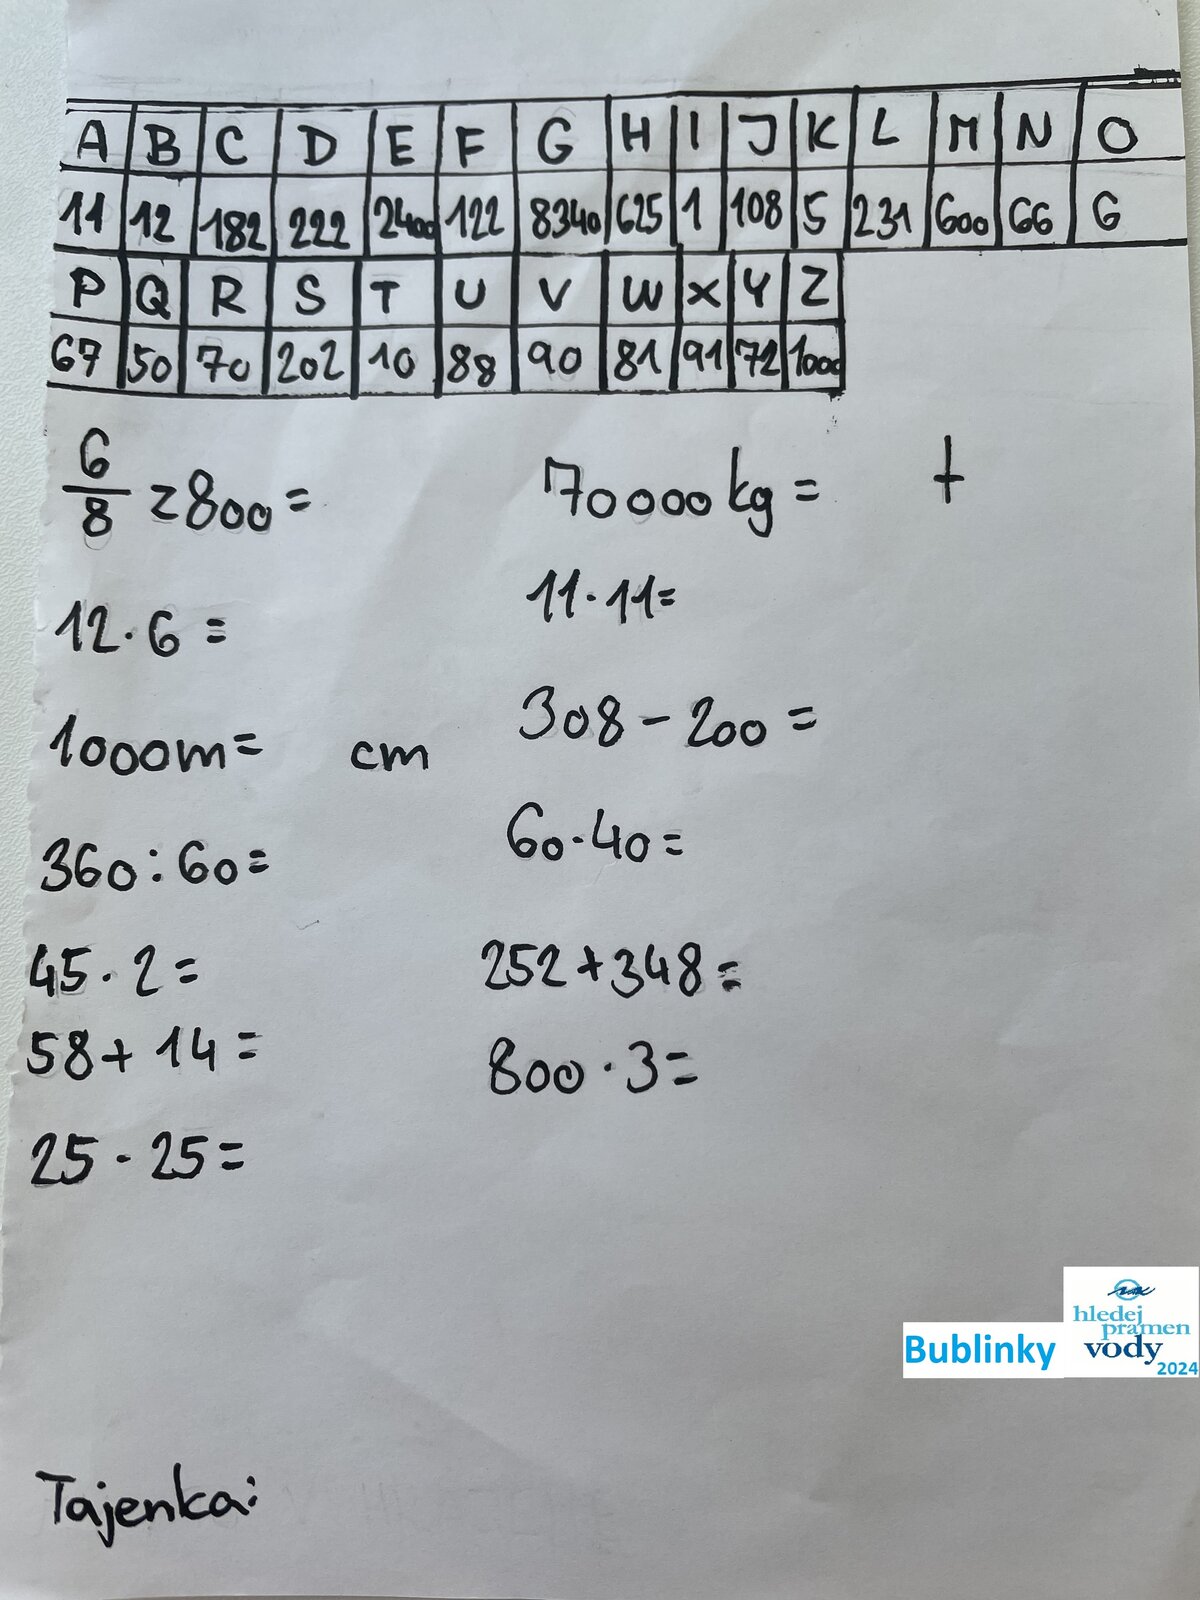 A B C D E F G H I J K L M N O
11 12 182 222 2400 122 8340 625 1 108 5 231 600 66 6
P Q R S T U V W X Y Z
67 50 70 202 10 88 90 81 91 72 1000
6/8 z 800 =
12 · 6 =
1000m = cm
360 : 60 =
45 · 2 =
58 + 14 =
25 · 25 =
70000 kg = t
11 · 11 =
308 - 200 =
60 · 40 =
252 + 348 =
800 · 3 =
Bublinky
hledej
pramen
vody
2024
Tajenka: